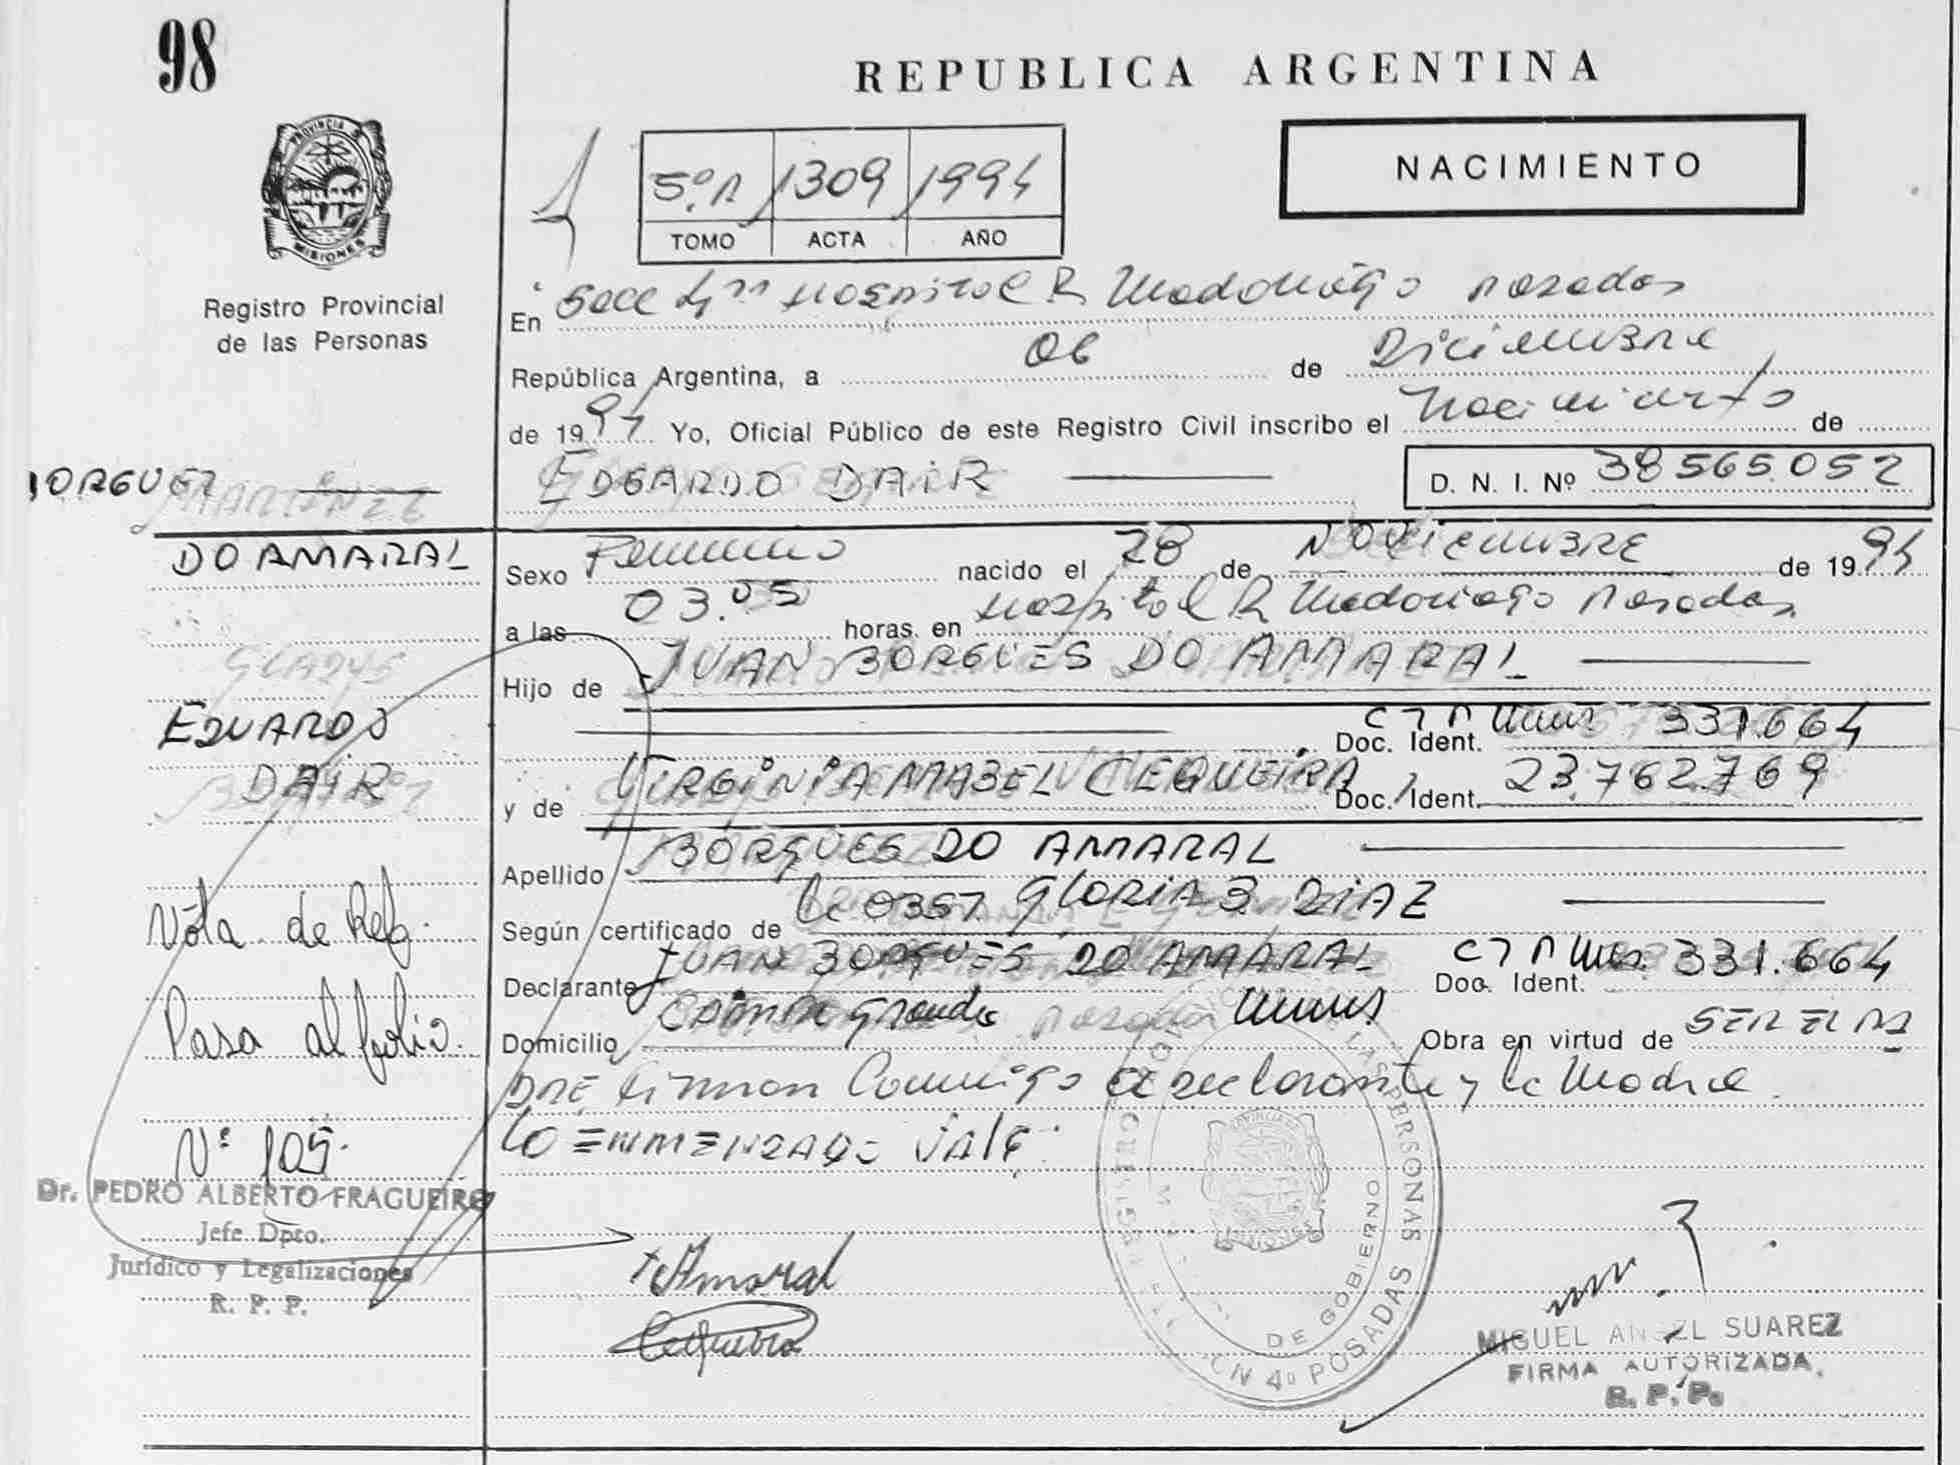 98
REPUBLICA ARGENTINA
NACIMIENTO
PROVINCIA DE
MISIONES
Registro Provincial
de las Personas
5º.A 1309 1994
TOMO ACTA AÑO
En Secc 4ª Hospital R Madariaga Posadas
República Argentina, a 06 de Diciembre
de 1994 Yo, Oficial Público de este Registro Civil inscribo el Nacimiento de
EDGARDO DAIR D. N. I. Nº 38565.052
BORGUEZ
DO AMARAL
Sexo Femenino nacido el 28 de NOViEMBRE de 1994
a las 03.05 horas. en Hospital R Madariaga Posadas
GLADYS
Hijo de JUAN BORGUES DO AMARAL
EDUARDO
Doc. Ident. 331.664
DAiR
y de VIRGiNiA MABEL CEQUEiRA Doc. Ident. 23.762.769
Apellido BORGUES DO AMARAL
Nota de Ref.
Según certificado de 0357 GLORiA B. DiAZ
Declarante JUAN BORGUES DO AMARAL Doc. Ident. 331.664
Pasa al folio
Domicilio Grande Posadas Obra en virtud de SER EL PA
DRE firman Conmigo el declarante y la Madre
Nº 105.
LO ENMENDADO VALE
Dr. PEDRO ALBERTO FRAGUEIRO
Jefe Dpto.
Jurídico y Legalizaciones
R. P. P.
Amaral
Cequeira
LAS PERSONAS
DE GOBIERNO
CN 4ª POSADAS
MIGUEL ANGEL SUAREZ
FIRMA AUTORIZADA
R. P. P.